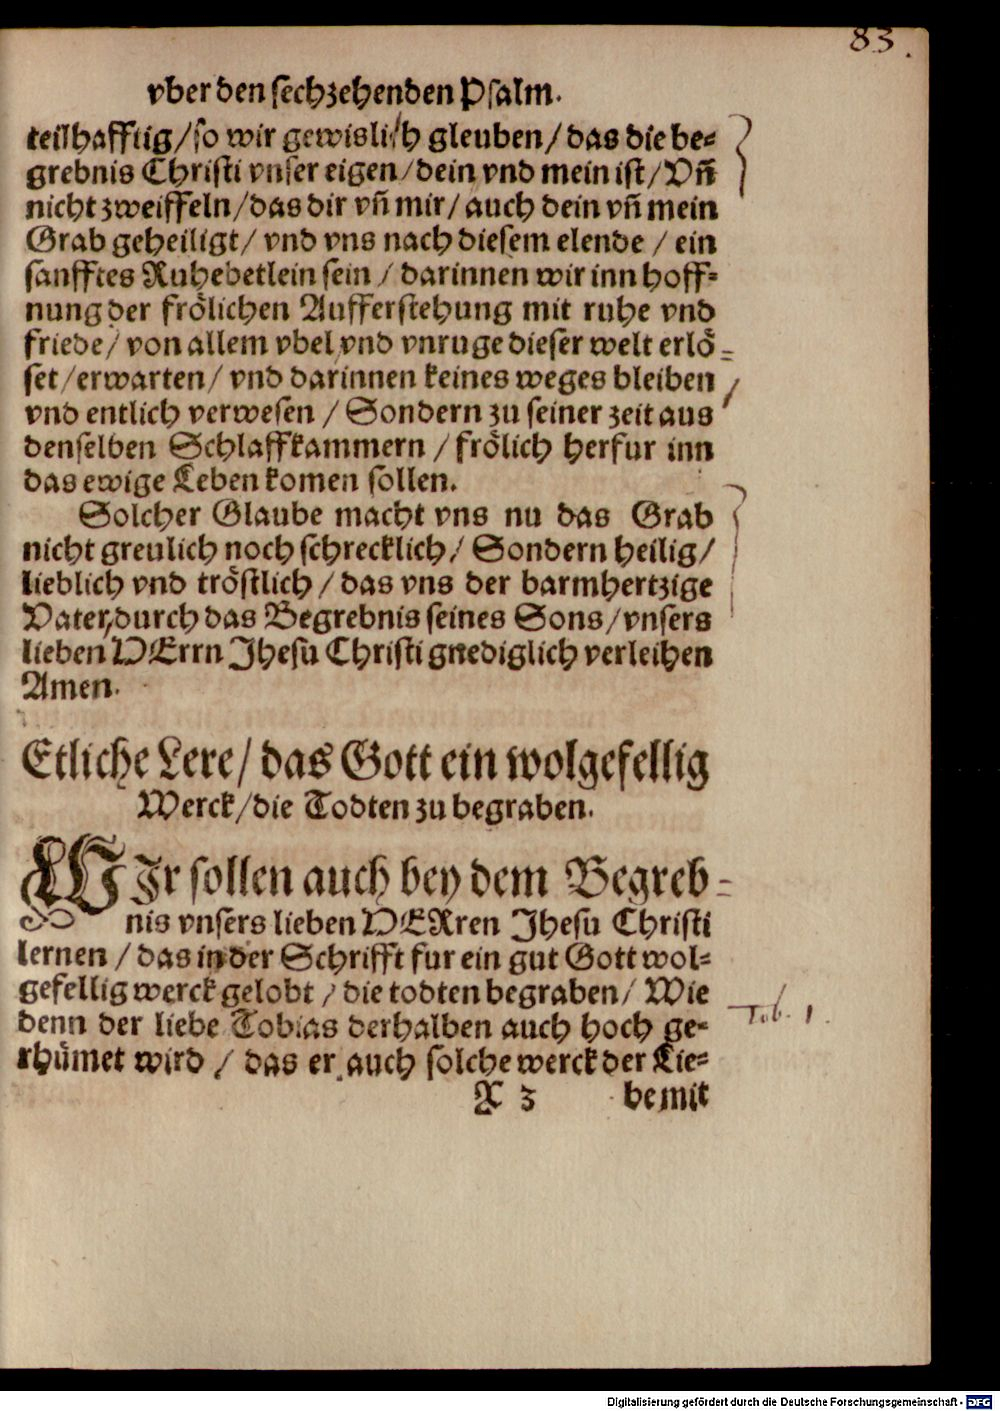 83.
vber den sechzehenden Psalm.
teilhafftig/so wir gewislich gleuben/das die be-
grebnis Christi vnser eigen/dein vnd mein ist/Vñ
nicht zweiffeln/das dir vñ mir/auch dein vñ mein
Grab geheiligt/vnd vns nach diesem elende/ein
sanfftes Ruhebetlein sein/darinnen wir inn hoff-
nung der frölichen Aufferstehung mit ruhe vnd
friede/von allem vbel vnd vnruge dieser welt erlö-
set/erwarten/vnd darinnen keines weges bleiben
vnd entlich verwesen/Sondern zu seiner zeit aus
denselben Schlaffkammern/frölich herfur inn
das ewige Leben komen sollen.
Solcher Glaube macht vns nu das Grab
nicht greulich noch schrecklich/Sondern heilig/
lieblich vnd tröstlich/das vns der barmhertzige
Vater,durch das Begrebnis seines Sons/vnsers
lieben HErrn Jhesu Christi gnediglich verleihen
Amen.
Etliche Lere/das Gott ein wolgefellig
Werck/die Todten zu begraben.
WJr sollen auch bey dem Begreb-
nis vnsers lieben HERren Jhesu Christi
lernen/das in der Schrifft fur ein gut Gott wol-
gefellig werck gelobt/die todten begraben/Wie
denn der liebe Tobias derhalben auch hoch ge-
rhümet wird/das er auch solche werck der Lie-
Tob. 1.
X 3 be mit
Digitalisierung gefördert durch die Deutsche Forschungsgemeinschaft - DFG